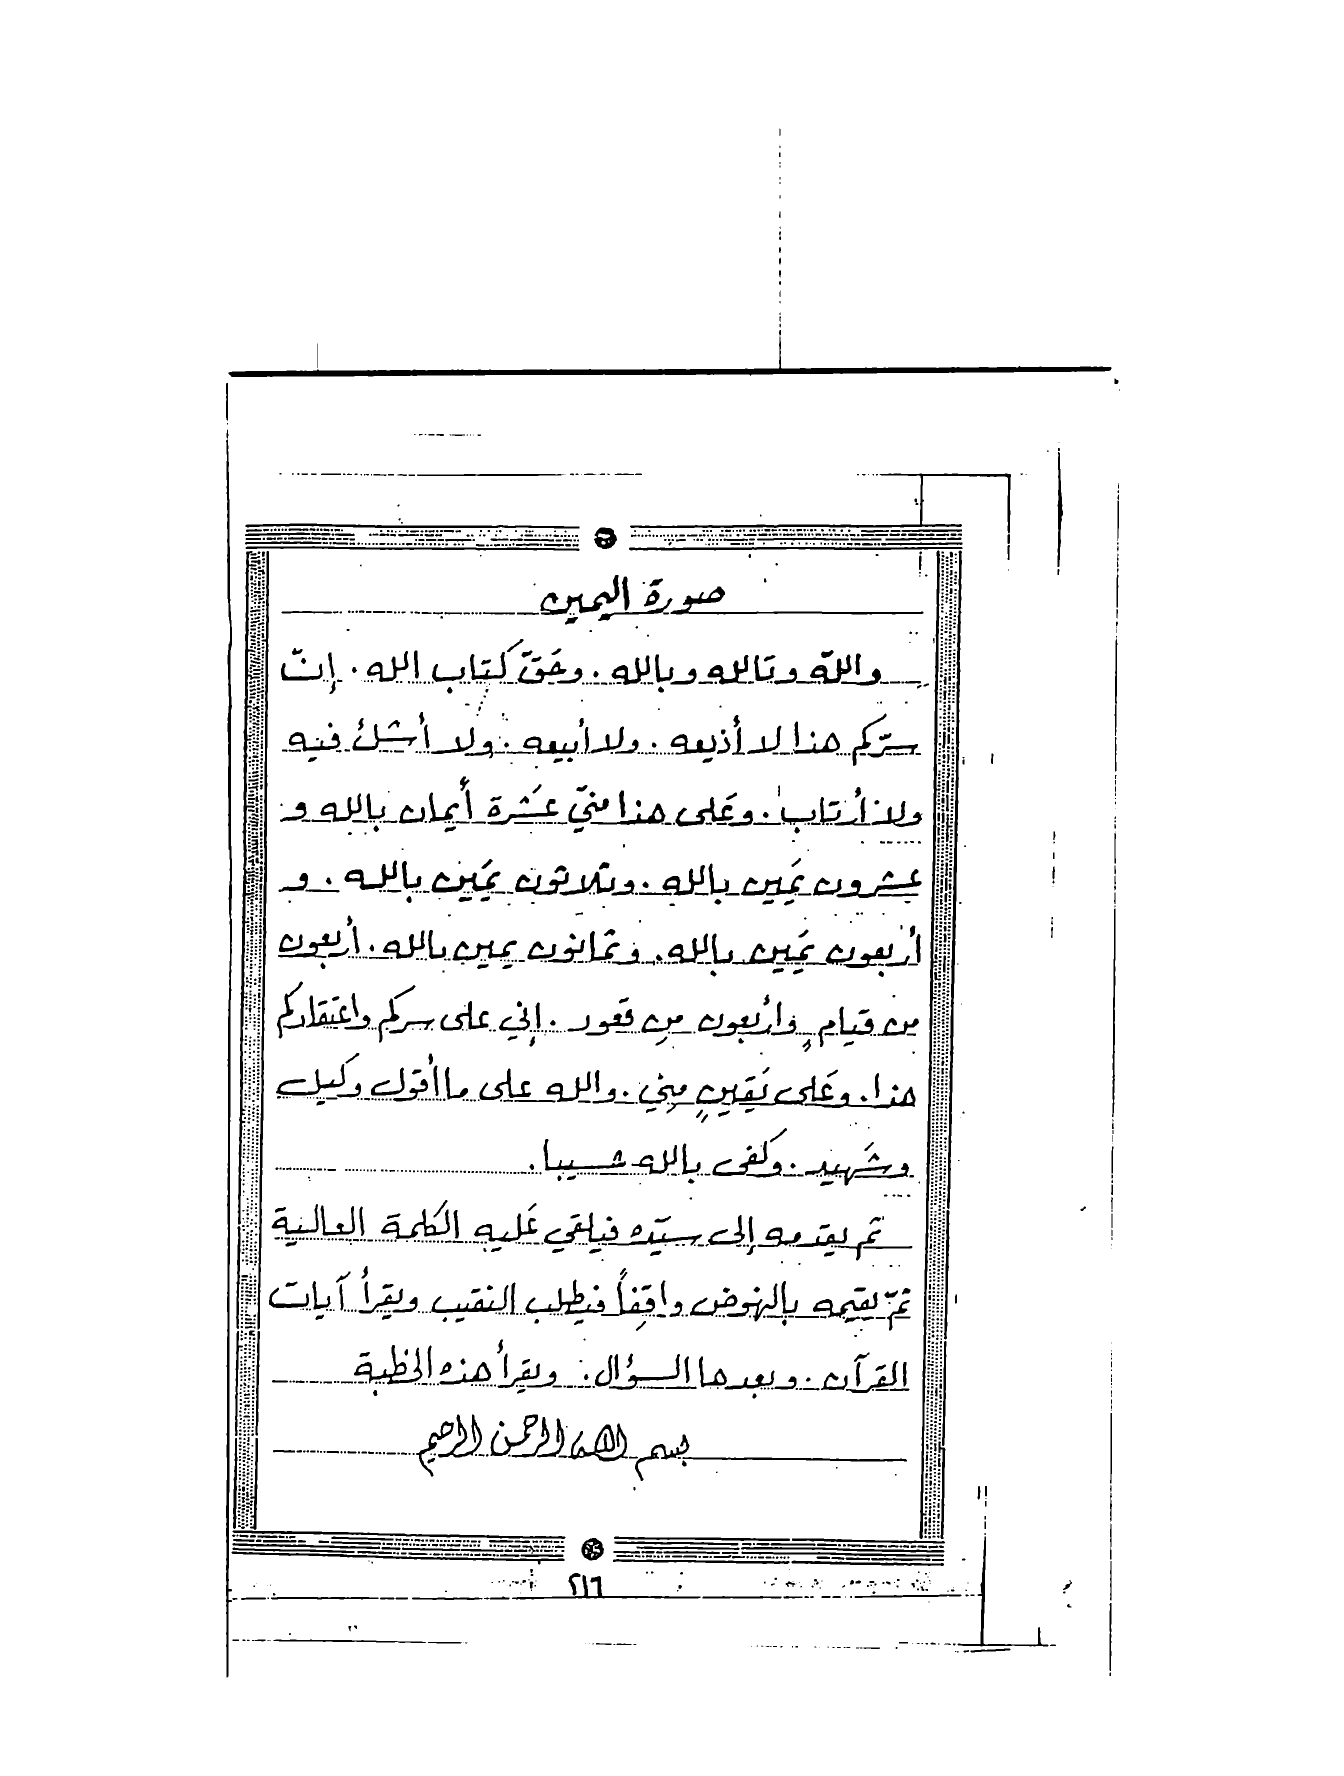 صورة اليمين
والله وتالله وبالله . وحَقّ كتاب الله . إنّ
سرّكم هذا لا أذيعه . ولا أبيعه . ولا أشكُ فيه
ولا أرتاب . وعَلى هذا منيّ عشَرة أيمان بالله و
عشرون يمَين بالله . وثلاثون يمَين بالله . و
أربعون يمَين بالله . وثمانون يمين بالله . أربعون
من قيامٍ وأربعون من قعود . إني على سركم واعتقادكم
هذا . وعَلى يَقينٍ مِني . والله على ما أقول وكيل
وشَهيد . وكفى بالله حسيبا .
ثم يقدمه إلى سيّده فيلقي عَليه الكلمة العالية
ثمّ يقيمه بالنهوض واقِفاً فيطلب النقيب ويقرأ آيات
القرآن . وبعدها السؤال : ويقرأ هذه الخطبة
بسم الله الرحمن الرحيم
٢١٦